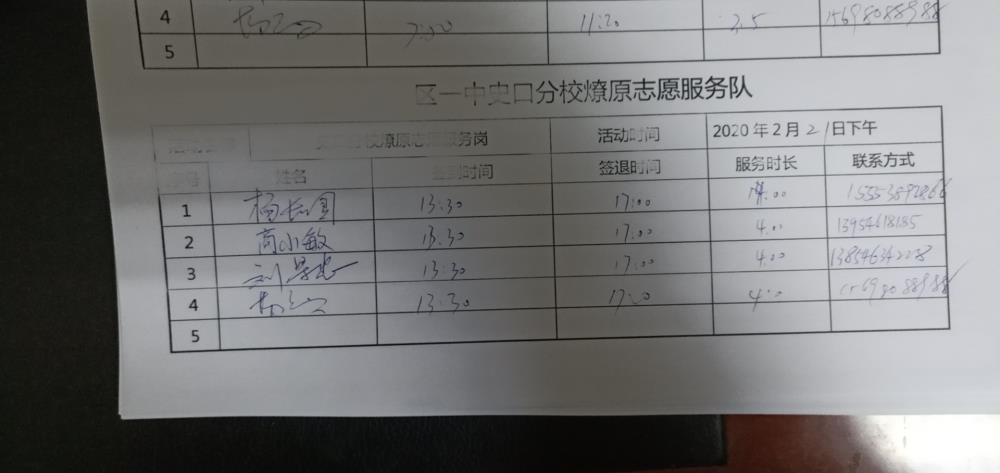 4 7:50 11:20 3.5 15698088988
5
区一中史口分校燎原志愿服务队
分校燎原志愿服务岗 活动时间 2020年2月21日下午
序号 姓名 签到时间 签退时间 服务时长 联系方式
1 13:30 17:00 4.00
2 高小敏 13.30 17:00 4.00 13954618185
3 13:30 17:00 4.00
4 13:30 17:00 4:0 15698088988
5